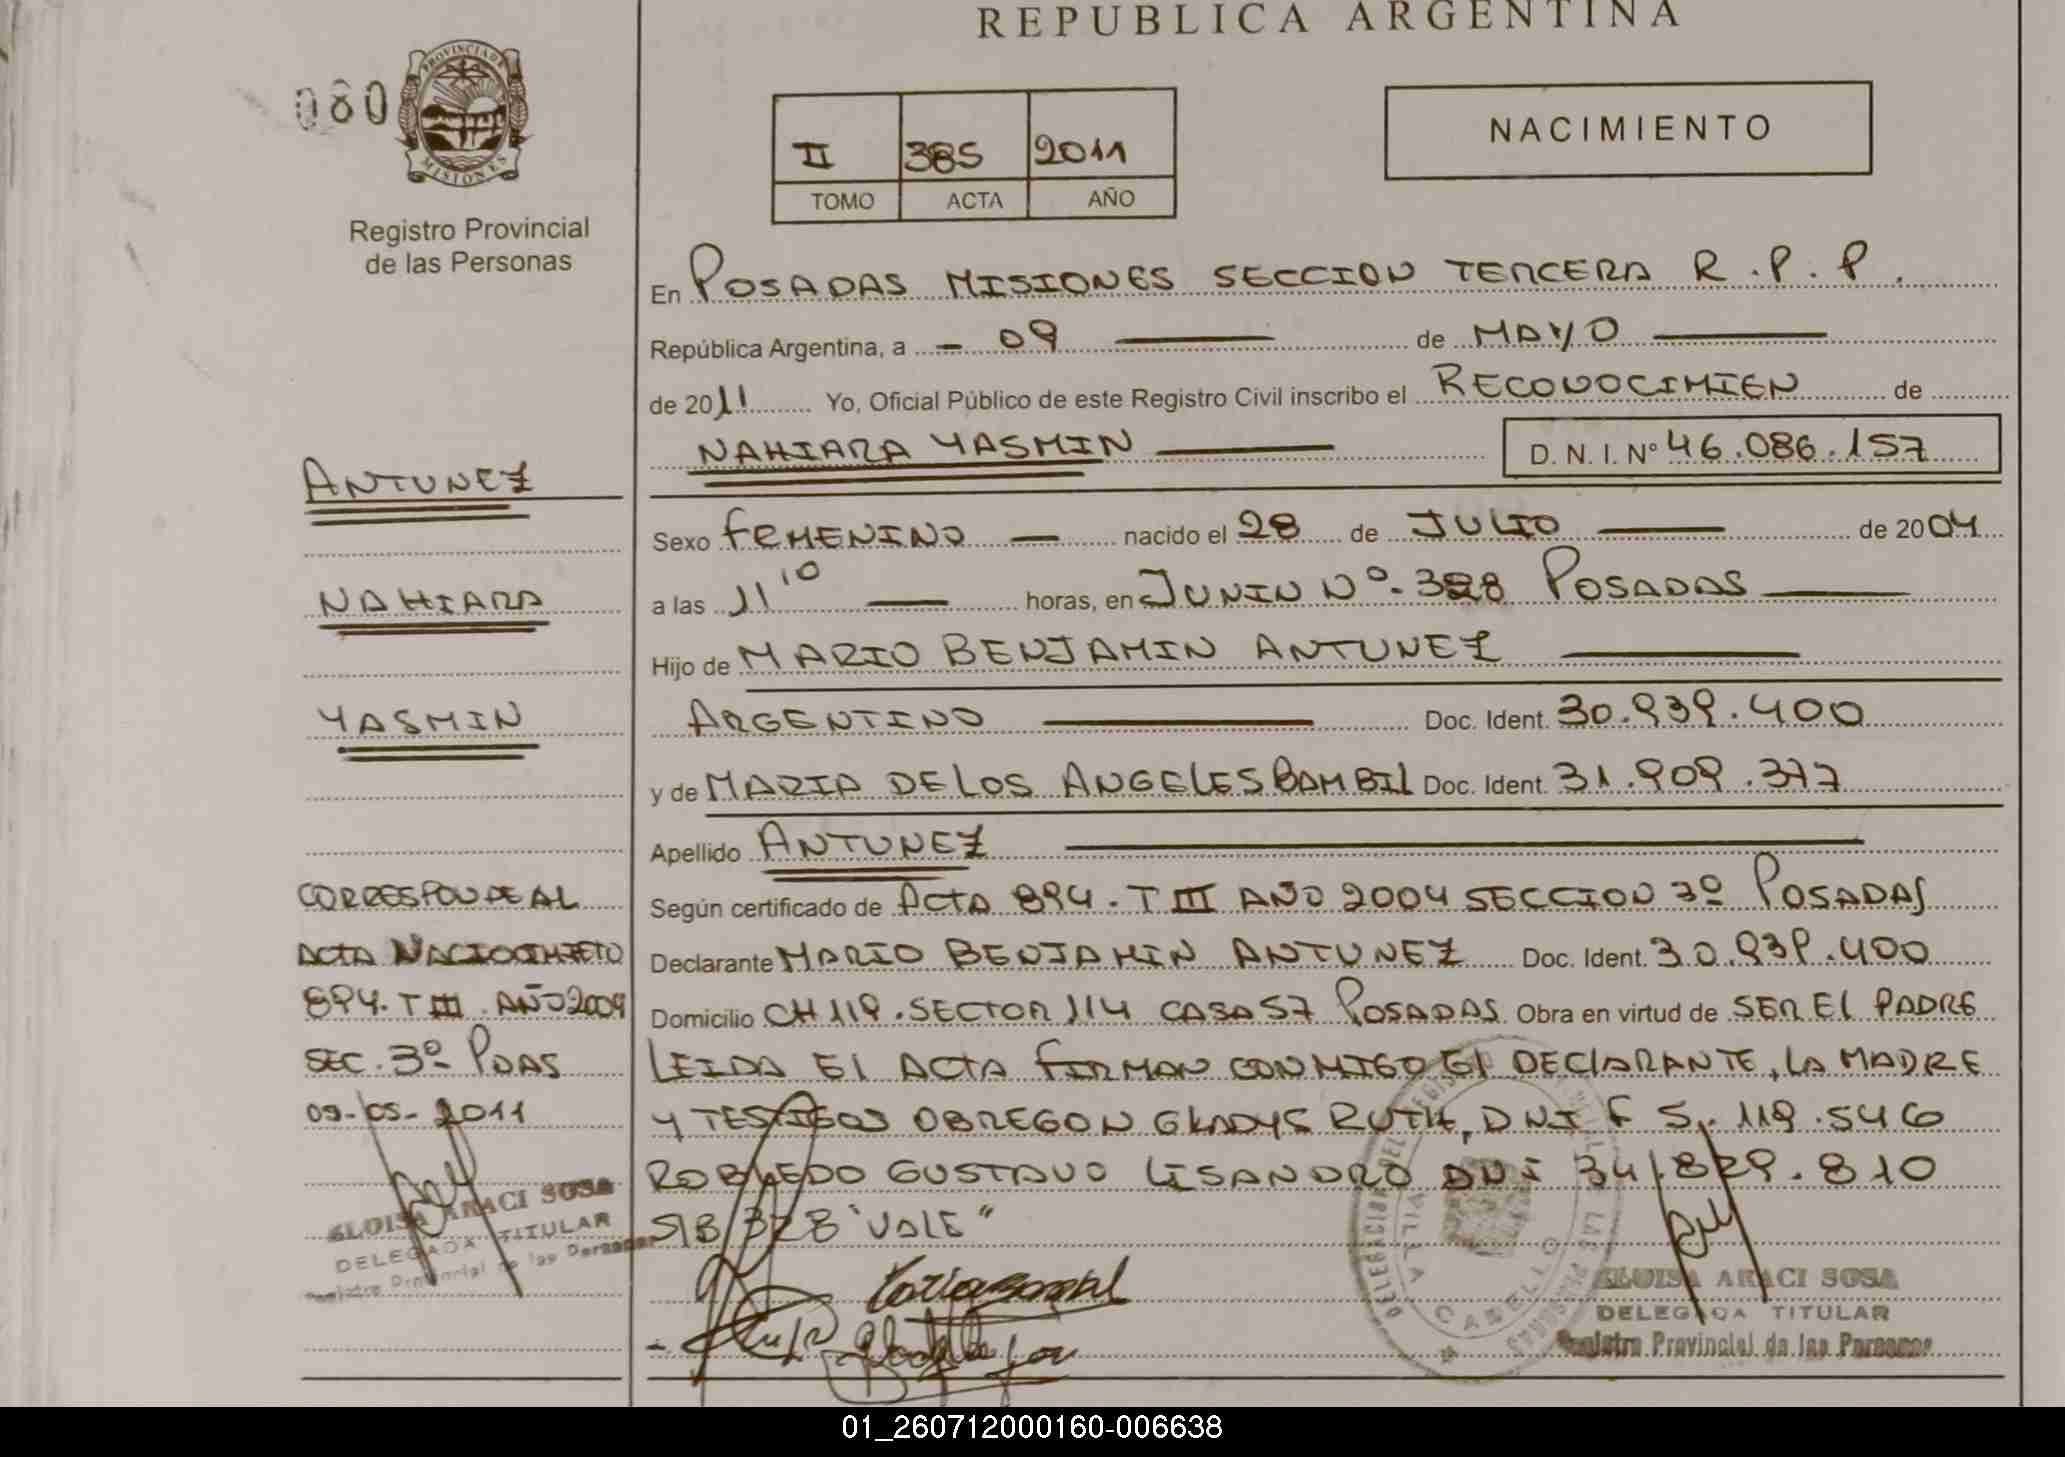 REPUBLICA ARGENTINA
080
PROVINCIA DE
MISIONES
Registro Provincial
de las Personas
II 385 2011
TOMO ACTA AÑO
NACIMIENTO
En POSADAS MISIONES SECCION TERCERA R.P.P.
República Argentina, a - 09 de MAYO
de 2011 Yo, Oficial Público de este Registro Civil inscribo el RECONOCIMIEN de
NAHIARA YASMIN D. N. I. Nº 46.086.157
Sexo FEMENINO nacido el 28 de JULIO de 2004
a las 11 10 horas, en JUNIN Nº. 328 POSADAS
Hijo de MARIO BENJAMIN ANTUNEZ
ARGENTINO Doc. Ident. 30.939.400
y de MARIA DE LOS ANGELES BAMBIL Doc. Ident. 31.909.377
Apellido ANTUNEZ
Según certificado de ACTA 894. T III AÑO 2004 SECCION 3º POSADAS
Declarante MARIO BENJAMIN ANTUNEZ Doc. Ident. 30.939.400
Domicilio CH 119. SECTOR 114 CASA 57 POSADAS Obra en virtud de SER EL PADRE
LEIDA EL ACTA FIRMAN CONMIGO EL DECLARANTE, LA MADRE
Y TESTIGOS OBREGON GLADYS RUTH, DNI F 5.119.546
ROBLEDO GUSTAVO LISANDRO DNI 34.829.810
S/B 328 "VALE"
ELOISA ARACI SOSA
DELEGADA TITULAR
Registro Provincial de las Personas
DELEGACION DEL REGISTRO
VILLA CABELLO
ANTUNEZ
NAHIARA
YASMIN
CORRESPONDE AL
ACTA NACIOMIETO
894. T III. AÑO 2004
SEC. 3º PDAS
09-05-2011
ELOISA ARACI SOSA
DELEGADA TITULAR
Registro Provincial de las Personas
01_260712000160-006638